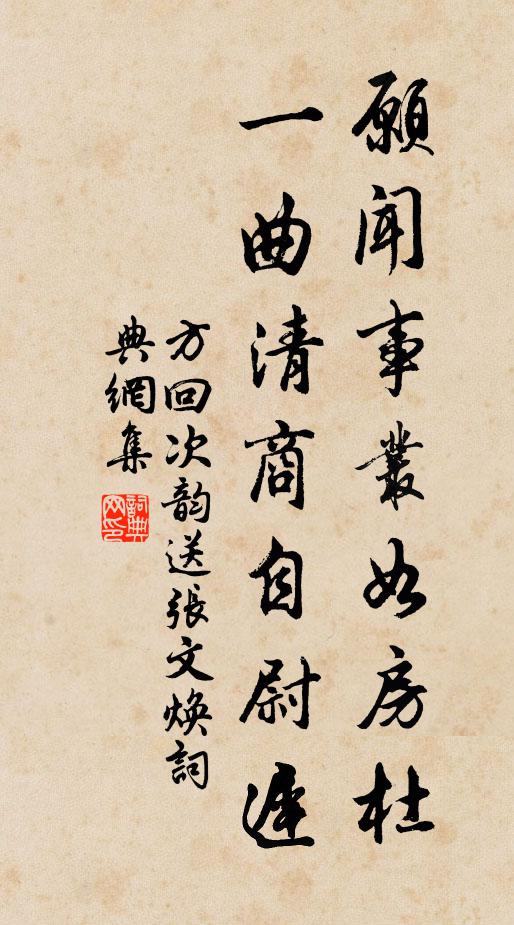 願聞事叢如房杜
一曲清商自尉遲
方回次韵送張文煥詞
典網集
詞典網印